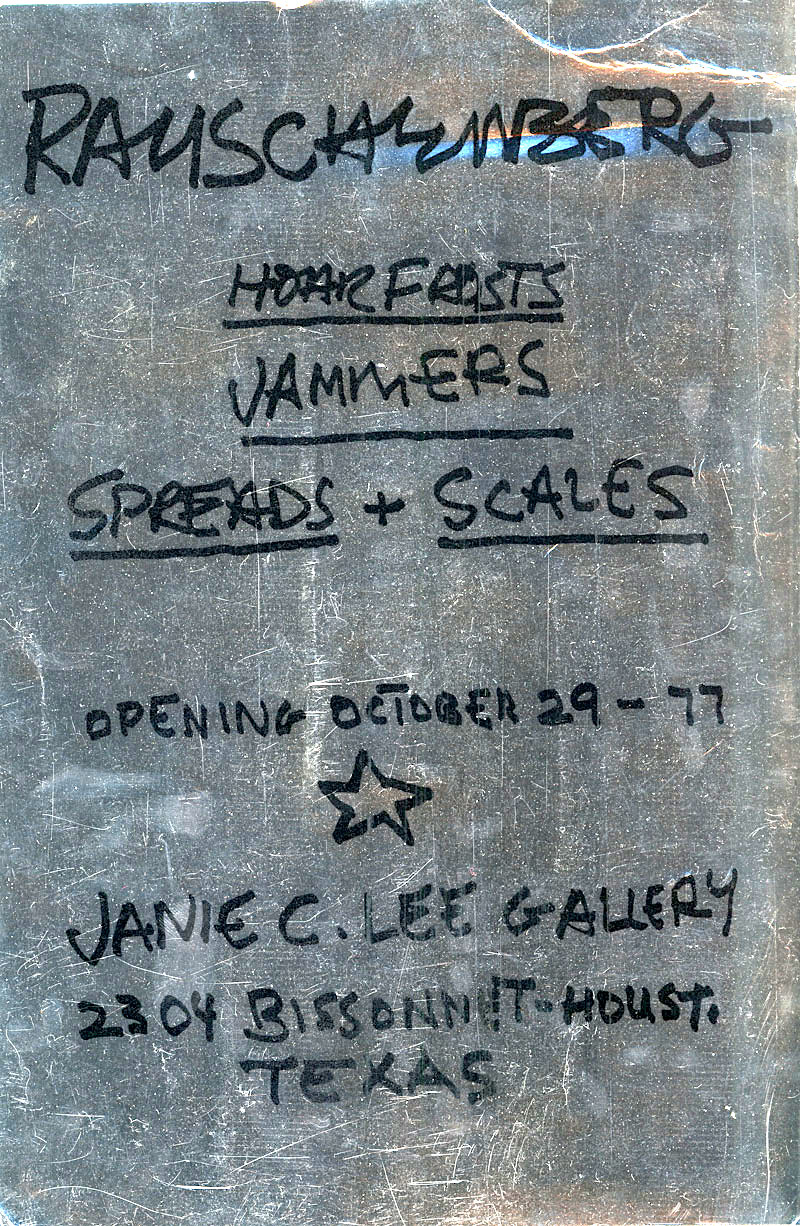 RAUSCHENBERG
HOARFROSTS
JAMMERS
SPREADS + SCALES
OPENING OCTOBER 29 - 77
JANIE C. LEE GALLERY
2304 BISSONNET - HOUST.
TEXAS